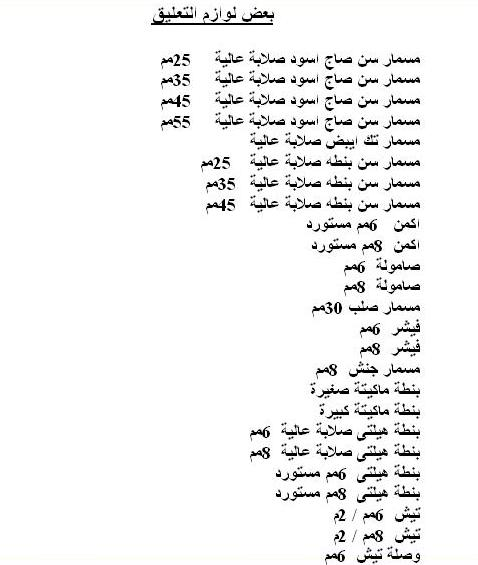 بعض لوازم التعليق
مسمار سن صاج اسود صلابة عالية 25مم
مسمار سن صاج اسود صلابة عالية 35مم
مسمار سن صاج اسود صلابة عالية 45مم
مسمار سن صاج اسود صلابة عالية 55مم
مسمار تك ايبض صلابة عالية
مسمار سن بنطه صلابة عالية 25مم
مسمار سن بنطه صلابة عالية 35مم
مسمار سن بنطه صلابة عالية 45مم
اكمن 6مم مستورد
اكمن 8مم مستورد
صامولة 6مم
صامولة 8مم
مسمار صلب 30مم
فيشر 6مم
فيشر 8مم
مسمار جنش 8مم
بنطة ماكيتة صغيرة
بنطة ماكيتة كبيرة
بنطة هيلتى صلابة عالية 6مم
بنطة هيلتى صلابة عالية 8مم
بنطة هيلتى 6مم مستورد
بنطة هيلتى 8مم مستورد
تيش 6مم / 2م
تيش 8مم / 2م
وصلة تيش 6مم